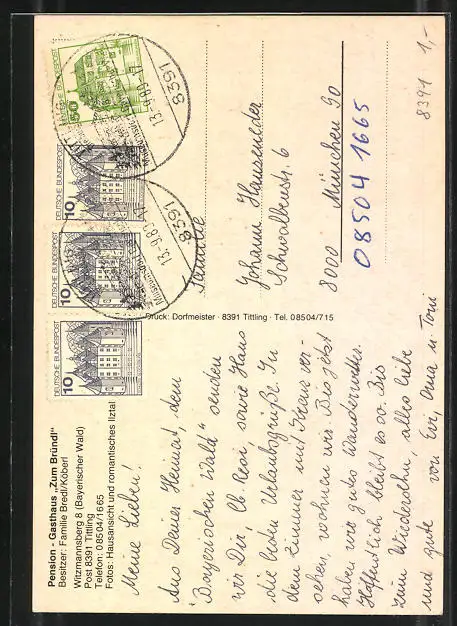 Pension - Gasthaus „Zum Bründl"
Besitzer: Familie Bredl/Köberl
Witzmannsberg 8 (Bayerischer Wald)
Post 8391 Tittling
Telefon: 08504/1665
Fotos: Hausansicht und romantisches Ilztal
Meine Lieben!
Aus Deiner Heimat, dem
"Bayerischen Wald" senden
wir Dir lb. Resi sowie Hans
die besten Urlaubsgrüße. In
dem Zimmer mit Kreuz ver-
sehen, wohnen wir. Bis jetzt
haben wir gutes Wanderwetter.
Hoffentlich bleibt es so. Bis
zum Wiedersehn, alles liebe
und gute von Evi, Oma u. Toni
Druck: Dorfmeister · 8391 Tittling · Tel. 08504/715
DEUTSCHE BUNDESPOST
50
DEUTSCHE BUNDESPOST
10
DEUTSCHE BUNDESPOST
10
DEUTSCHE BUNDESPOST
10
13.-9.89
8391
13.-9.89
8391
Familie
Johann Hausenelder
Schwalbenstr. 6
8000 München 90
08504 1665
8391 1,-